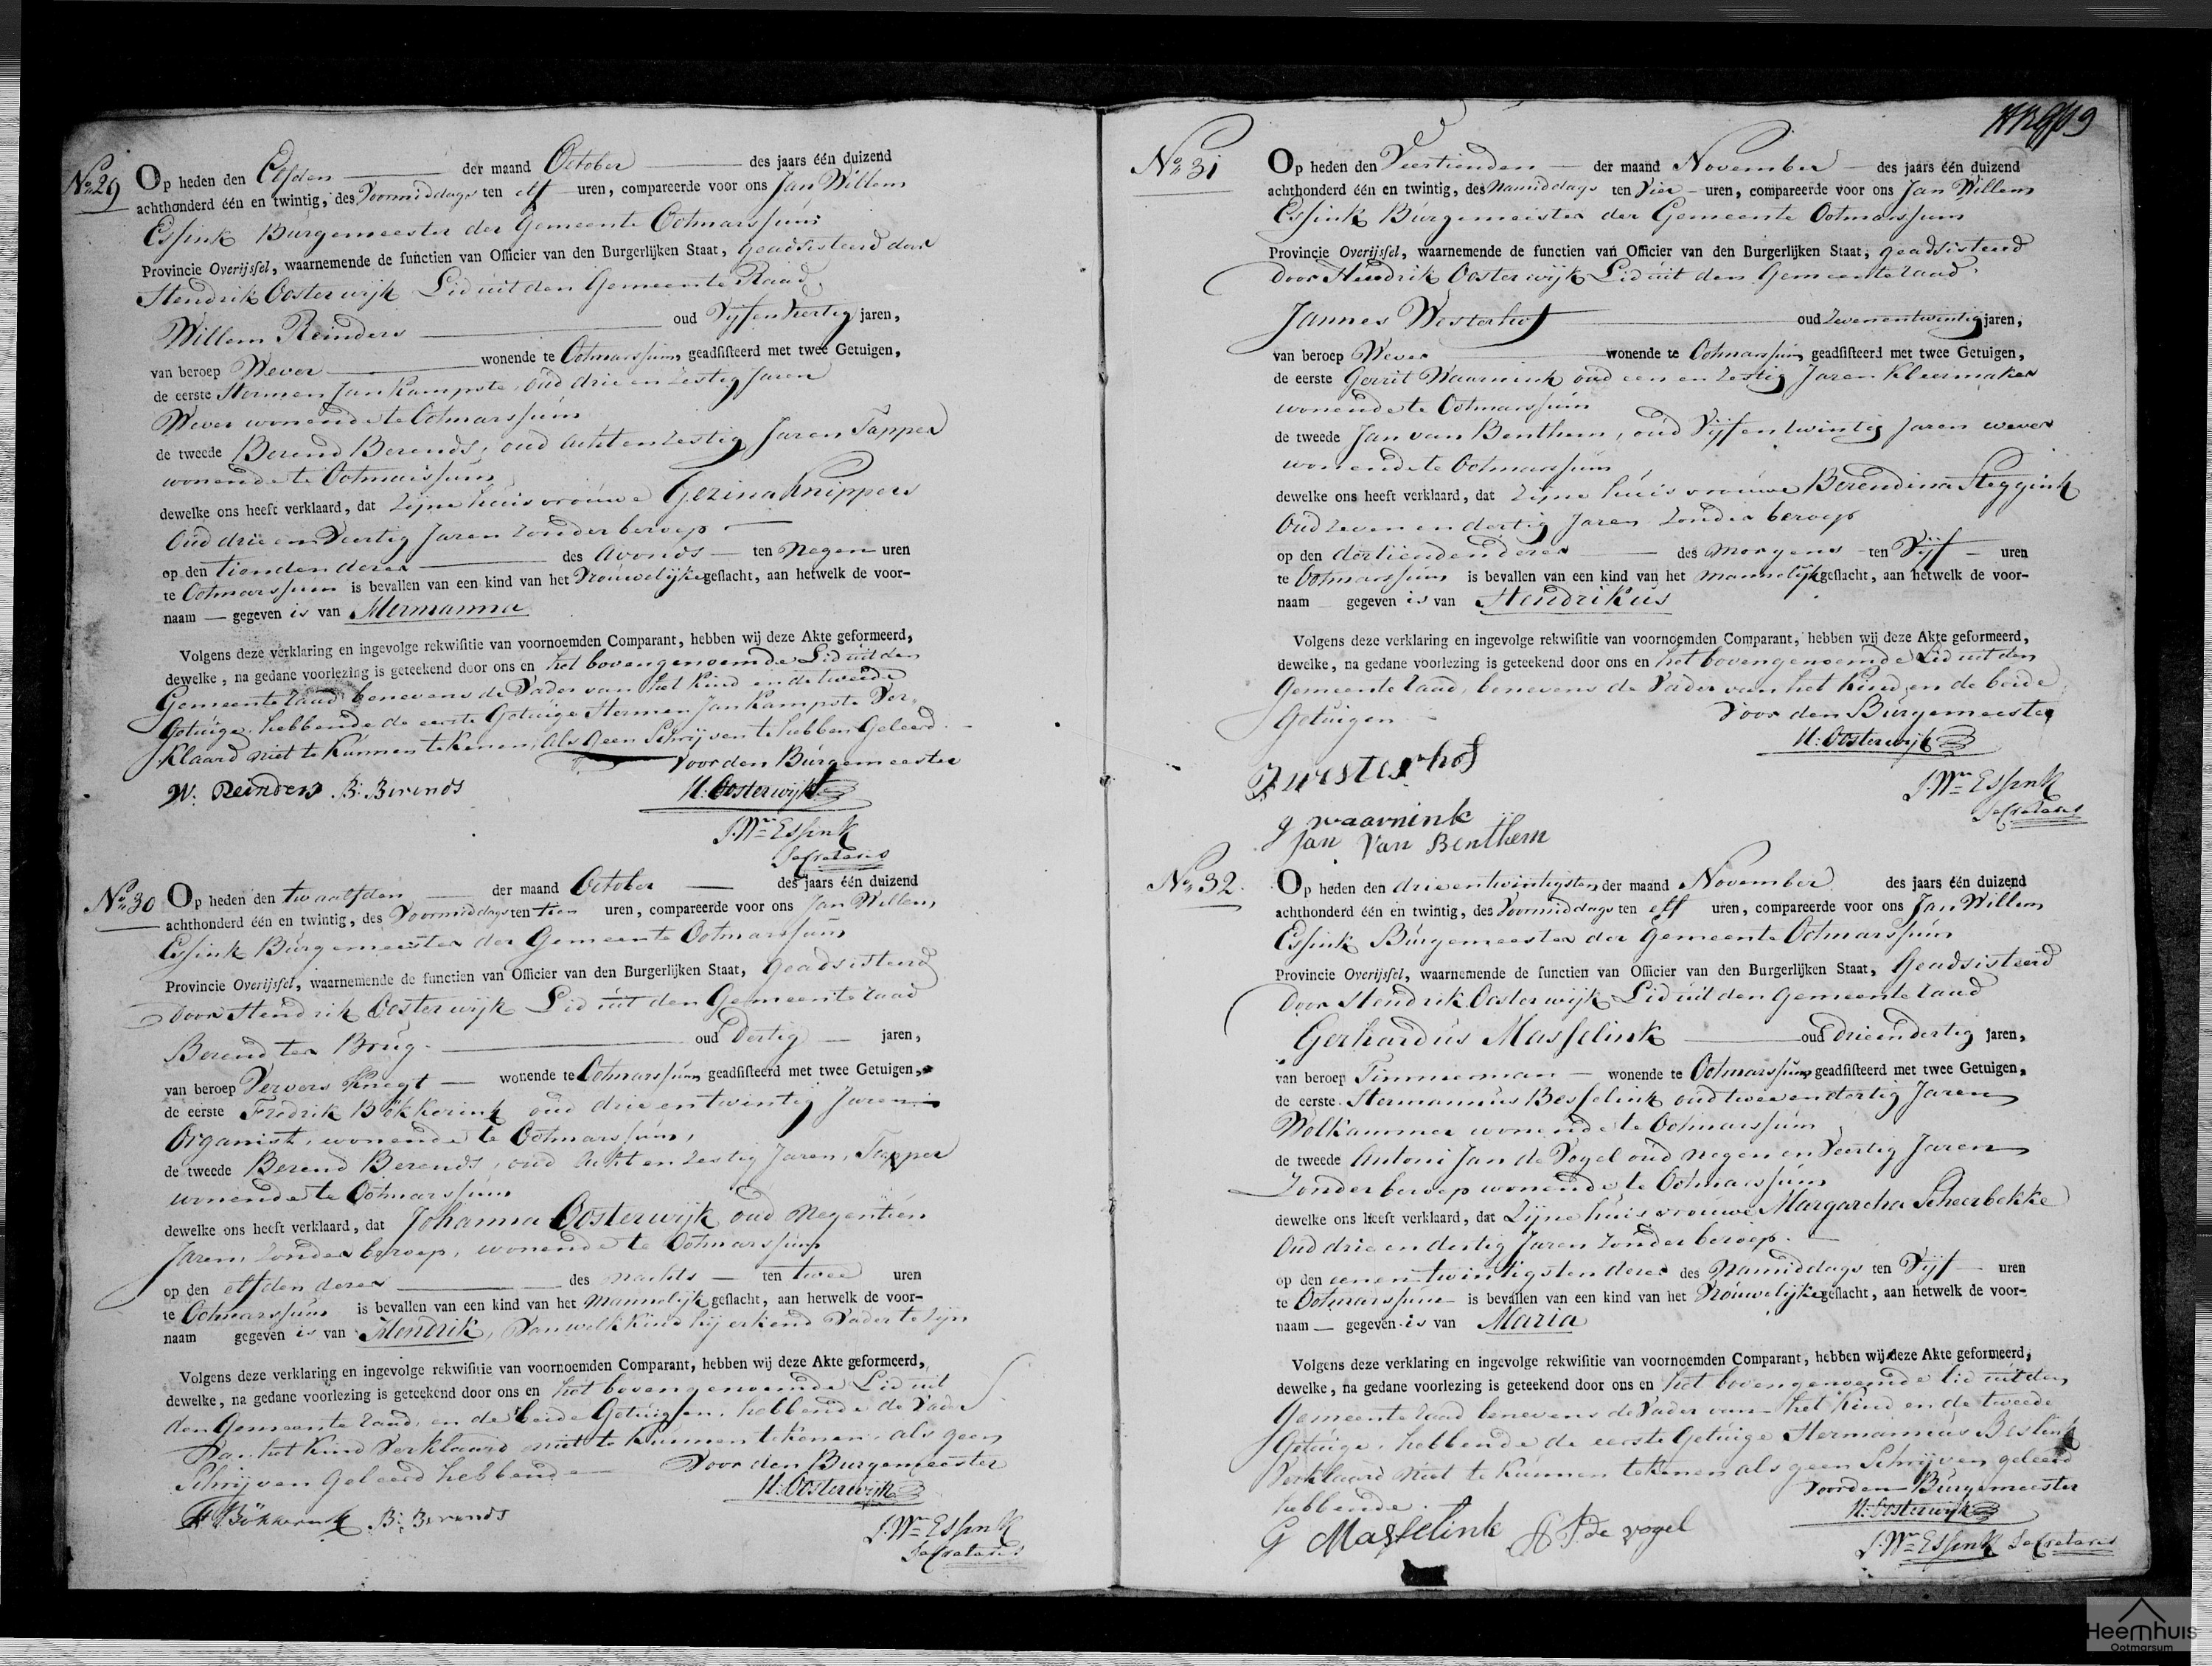 No 29 Op heden den Elfden der maand October des jaars één duizend
achthonderd één en twintig, des Voormiddags ten elf uren, compareerde voor ons Jan Willem
Essink Burgemeester der Gemeente Ootmarssum
Provincie Overijssel, waarnemende de functien van Officier van den Burgerlijken Staat, geadsisteerd door
Hendrik Oosterwijk Lid uit den Gemeente Raad,
Willem Reinders oud Vijfenveertig jaren,
van beroep Wever wonende te Ootmarssum, geadsisteerd met twee Getuigen,
de eerste Hermen Jan Kampste, oud drie en zestig Jaren
Wever wonende te Ootmarssum
de tweede Berend Berends, oud acht en zestig Jaren Tapper
wonende te Ootmarssum
dewelke ons heeft verklaard, dat zijne huisvrouwe Gezina Knippers
Oud drie en Veertig Jaren zonder beroep
op den tienden dezer des avonds ten negen uren
te Ootmarssum is bevallen van een kind van het Vrouwelijke geslacht, aan hetwelk de voor-
naam gegeven is van Hermanna
Volgens deze verklaring en ingevolge rekwisitie van voornoemden Comparant, hebben wij deze Akte geformeerd,
dewelke, na gedane voorlezing is geteekend door ons en het bovengenoemde Lid uit den
Gemeente raad benevens de Vader van het Kind en de tweede
Getuige, hebbende de eerste Getuige Hermen Jan Kampste Ver-
klaard niet te Kunnen tekenen, als geen Schrijven te hebben Geleerd.
Voor den Burgemeester
W. Reinders B. Berends H. Oosterwijk
J. Wm Essink
Secretaris
No 30 Op heden den twaalfden der maand October des jaars één duizend
achthonderd één en twintig, des Voormiddags ten tien uren, compareerde voor ons Jan Willem
Essink Burgemeester der Gemeente Ootmarssum
Provincie Overijssel, waarnemende de functien van Officier van den Burgerlijken Staat, geadsisteerd
door Hendrik Oosterwijk Lid uit den Gemeente raad
Berend ter Brug oud Dertig jaren,
van beroep Ververs Knegt wonende te Ootmarssum, geadsisteerd met twee Getuigen,
de eerste Fredrik Bökkerink oud drie en twintig Jaren
Organist, wonende te Ootmarssum,
de tweede Berend Berends, oud acht en zestig Jaren, Tapper
wonende te Ootmarssum
dewelke ons heeft verklaard, dat Johanna Oosterwijk oud Negentien
Jaren, zonder beroep, wonende te Ootmarssum,
op den elfden dezer des nachts ten twee uren
te Ootmarssum is bevallen van een kind van het mannelijk geslacht, aan hetwelk de voor-
naam gegeven is van Hendrik, Van welk kind hij erkend Vader te zijn
Volgens deze verklaring en ingevolge rekwisitie van voornoemden Comparant, hebben wij deze Akte geformeerd,
dewelke, na gedane voorlezing is geteekend door ons en het bovengenoemde Lid uit
den Gemeente raad, en de beide Getuigen, hebbende de Vader
Van het Kind Verklaard niet te kunnen tekenen, als geen
Schrijven Geleerd hebbende Voor den Burgemeester
H. Oosterwijk
F Bökkerink B. Berends
J. Wm Essink
Secretaris
No 31 Op heden den Veertienden der maand November des jaars één duizend
achthonderd één en twintig, des Namiddags ten Vier uren, compareerde voor ons Jan Willem
Essink Burgemeister der Gemeente Ootmarssum
Provincie Overijssel, waarnemende de functien van Officier van den Burgerlijken Staat, geadsisteerd
door Hendrik Oosterwijk Lid uit den Gemeente raad
Jannes Westerhof oud Zevenentwintig jaren,
van beroep Wever wonende te Ootmarssum, geadsisteerd met twee Getuigen,
de eerste Gerrit Waarnink oud een en zestig Jaren Kleermaker
wonende te Ootmarssum
de tweede Jan van Benthem, oud Vijf en twintig Jaren wever
wonende te Ootmarssum
dewelke ons heeft verklaard, dat zijne huisvrouwe Berendina Steggink
Oud zeven en dertig Jaren zonder beroep
op den dertienden dezer des morgens ten Vijf uren
te Ootmarssum is bevallen van een kind van het mannelijk geslacht, aan hetwelk de voor-
naam gegeven is van Hendrikus
Volgens deze verklaring en ingevolge rekwisitie van voornoemden Comparant, hebben wij deze Akte geformeerd,
dewelke, na gedane voorlezing is geteekend door ons en het bovengenoemde Lid uit den
Gemeente raad, benevens de Vader van het Kind en de beide
Getuigen Voor den Burgemeester
H. Oosterwijk
J westerhof
J. Wm Essink
Secretaris
g waarnink
Jan Van Benthem
No 32 Op heden den drieentwintigsten der maand November des jaars één duizend
achthonderd één en twintig, des Voormiddags ten elf uren, compareerde voor ons Jan Willem
Essink Burgemeester der Gemeente Ootmarssum
Provincie Overijssel, waarnemende de functien van Officier van den Burgerlijken Staat, Geadsisteerd
Door Hendrik Oosterwijk Lid uit den gemeente raad
Gerhardus Masselink oud drieendertig jaren,
van beroep Timmerman wonende te Ootmarssum, geadsisteerd met twee Getuigen,
de eerste Hermannus Besselink oud twee en dertig Jaren
Wolkammer wonende te Ootmarssum
de tweede Antoni Jan de Vogel oud negen en Veertig Jaren
Zonder beroep wonende te Ootmarssum
dewelke ons heeft verklaard, dat Zijne huisvrouwe Margaretha Scheerbekke
Oud drie en dertig Jaren zonder beroep.
op den eenentwintigsten dezer des Namiddags ten Vijf uren
te Ootmarssum is bevallen van een kind van het Vrouwelijke geslacht, aan hetwelk de voor-
naam gegeven is van Maria
Volgens deze verklaring en ingevolge rekwisitie van voornoemden Comparant, hebben wij deze Akte geformeerd,
dewelke, na gedane voorlezing is geteekend door ons en het bovengenoemde lid uit den
Gemeente raad benevens de Vader van het Kind en de tweede
Getuige, hebbende de eerste Getuige Hermannus Beslink
Verklaard niet te Kunnen tekenen als geen Schrijven geleerd
hebbende. Voor den Burgemeester
H. Oosterwijk
G Masselink A J. de vogel
J. Wm Essink Secretaris
Heemhuis
Ootmarsum